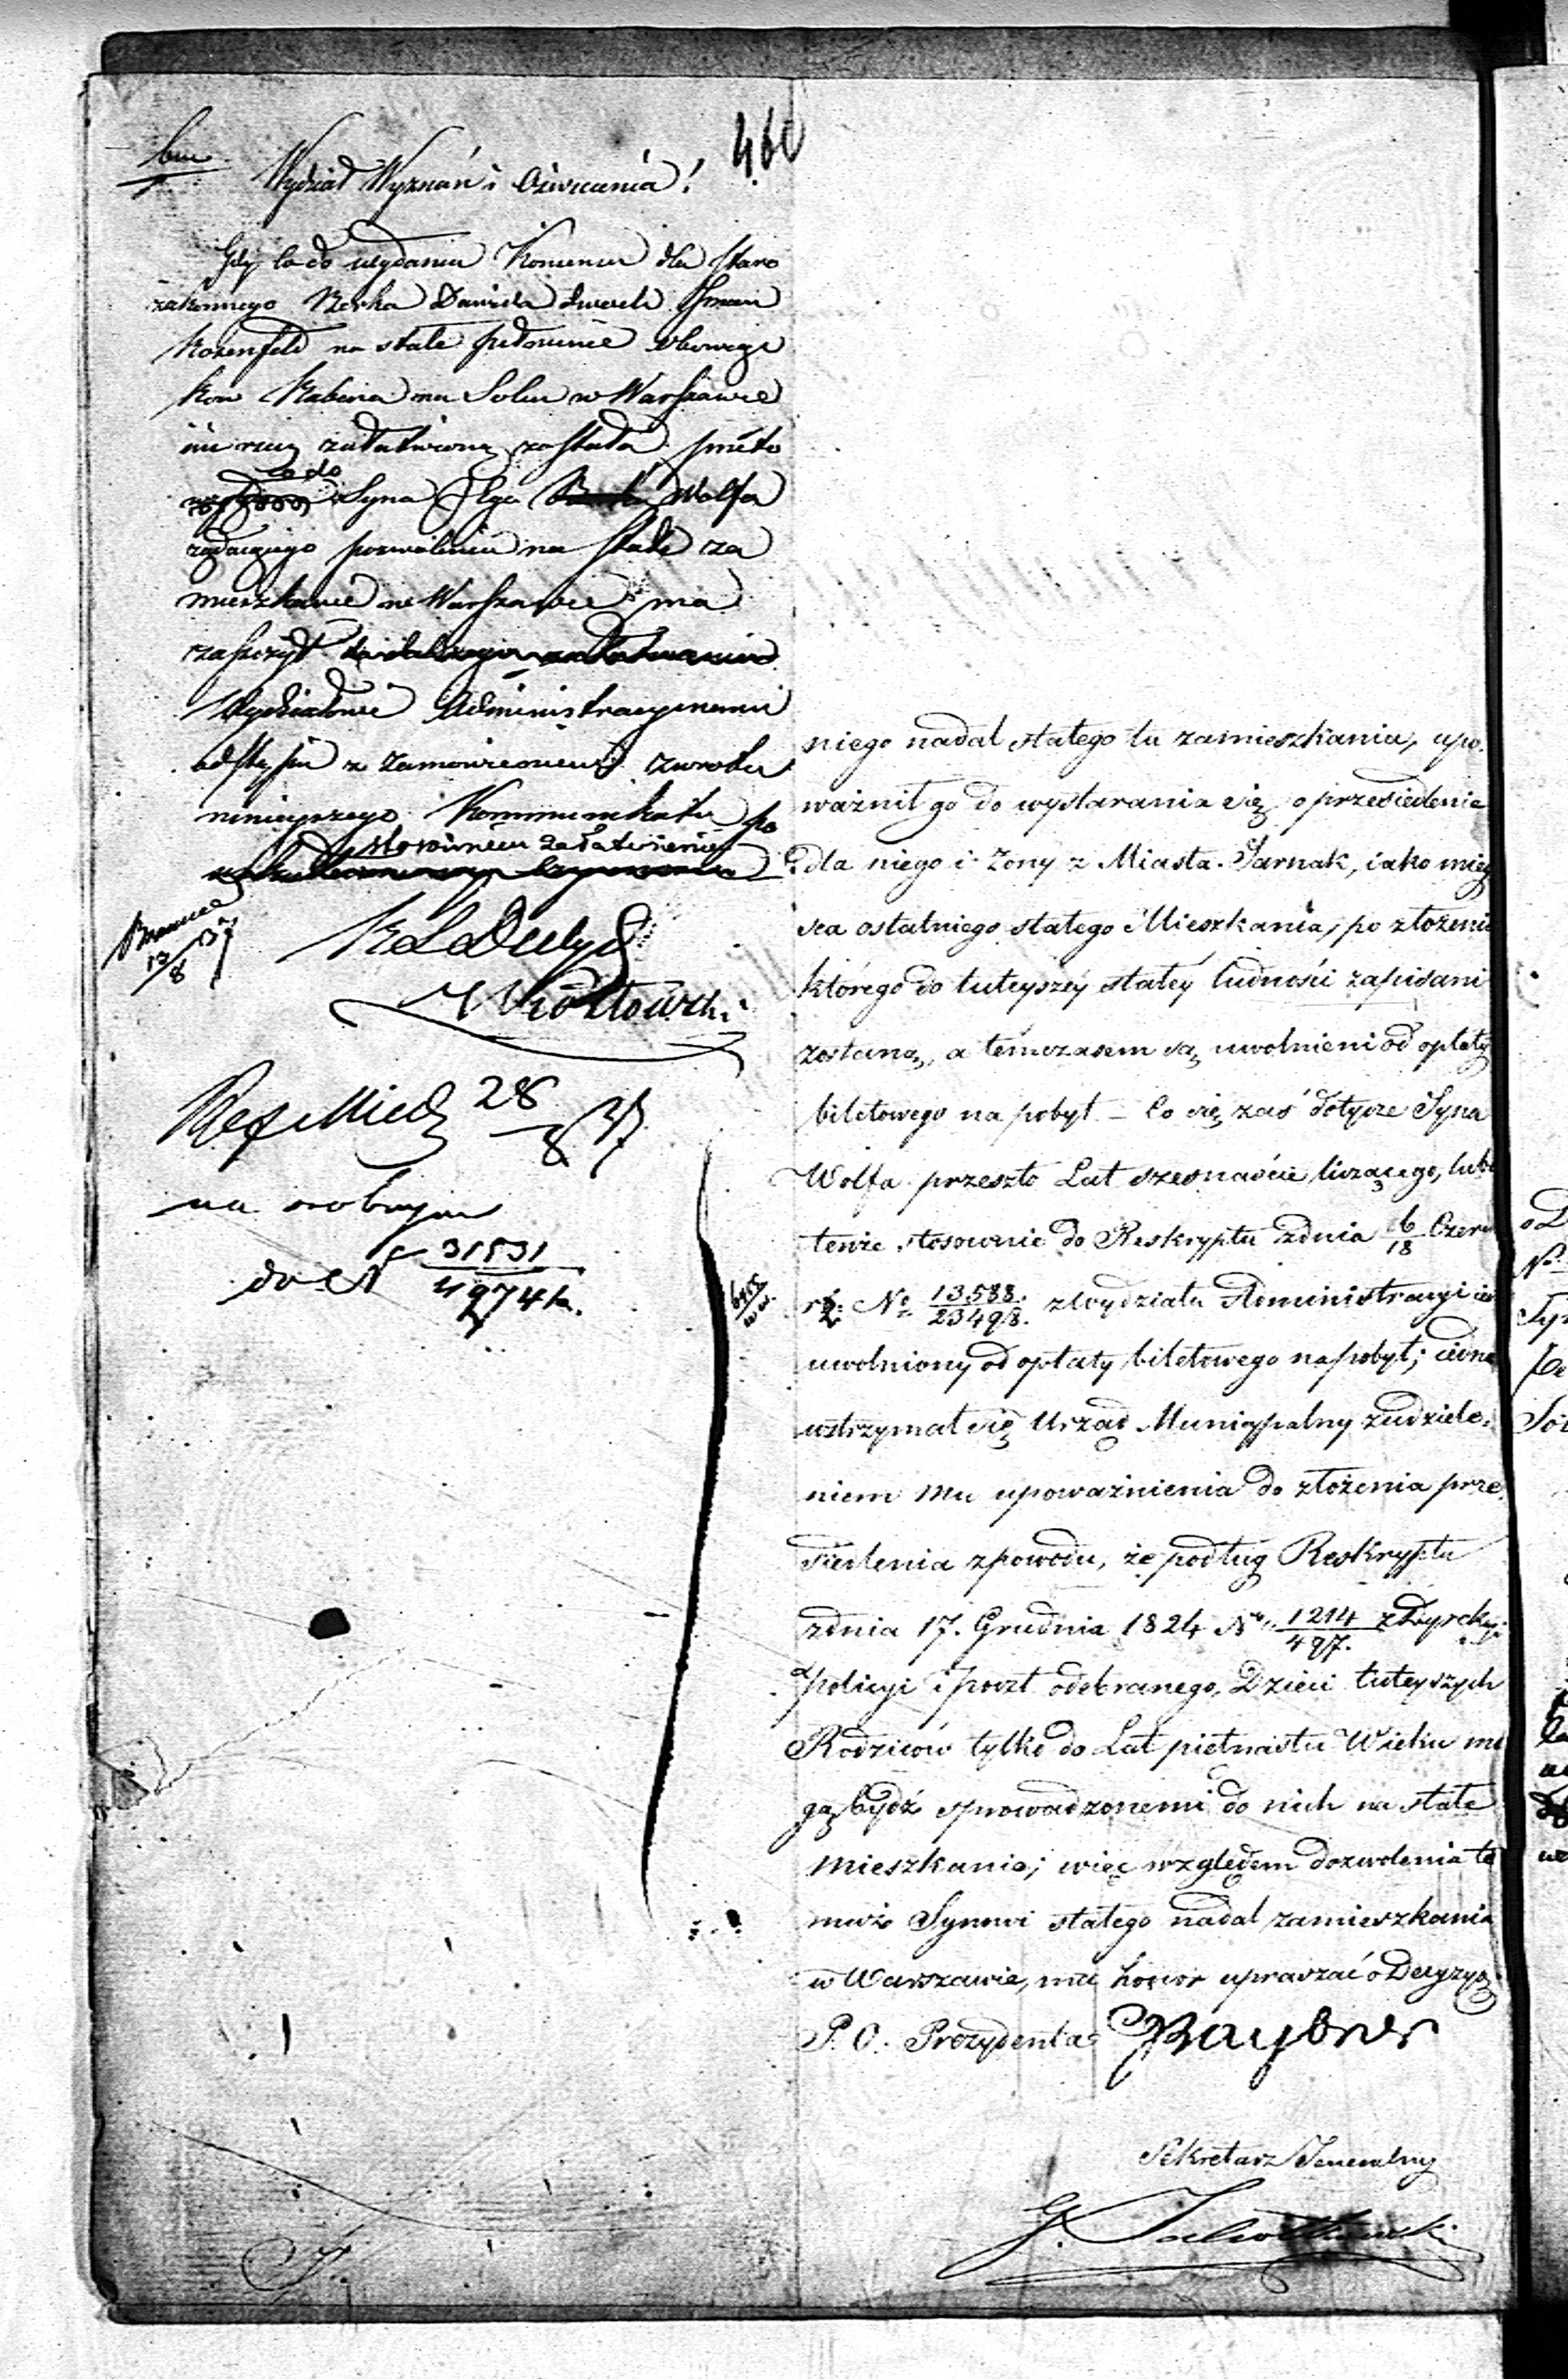 460
Wydział Wyznań i Oświecenia!
Gdy co do wydania Konsensu dla Staro
zakonnego Berka Dawida
Rozenfeld na stałe pełnienie obowiąz
ków Rabina na Solcu w Warszawie
załatwioną została przeto
co do
Syna Jego Wolfa
żądaiącego pozwolenia na Stałe za
mieszkanie w Warszawie ma
zaszczyt
Wydziałowi Administracyinemu
z zamówieniem zwrotu
ninieyszego Kommunikatu po
stosownem załatwieniu
12/8 37
28/8 37
na osobnym
do N 31531
niego nadal stałego tu zamieszkania, upo-
ważnił go do wystarania się o przesiedlenie
dla niego i Żony z Miasta Sarnak, iako miey
sca ostatniego stałego Mieszkania, po złożeniu
którego do tuteyszéy stałéy ludności zapisani
zostaną, a témczasem są uwolnieni od opłaty
biletowego na pobyt – Co się zaś dotycze Syna
Wolfa przeszło Lat szesnaście liczącego, lubo
tenże stosownie do Reskryptu z dnia 6/18 Czerw
r. b. No 13588/23498 z Wydziału Administracyi iest
uwolniony od opłaty biletowego na pobyt; iedna
wstrzymał się Urząd Municypalny z udziele-
niem mu upoważnienia do złożenia prze-
siedlenia z powodu, że podług Reskryptu
z dnia 17. Grudnia 1824 No 1214/497. z Dyrekcyi
Policyi i poczt odebranego, Dzieci tuteyszych
Rodziców tylko do Lat piętnastu Wieku mo
gą bydź sprowadzonemi do nich na stałe
mieszkanie; więc względem dozwolenia te
muż Synowi stałego nadal zamieszkania
w Warszawie, ma honor upraszać o Decyzyą.
P. O. Prezydenta
Sekretarz Jeneralny